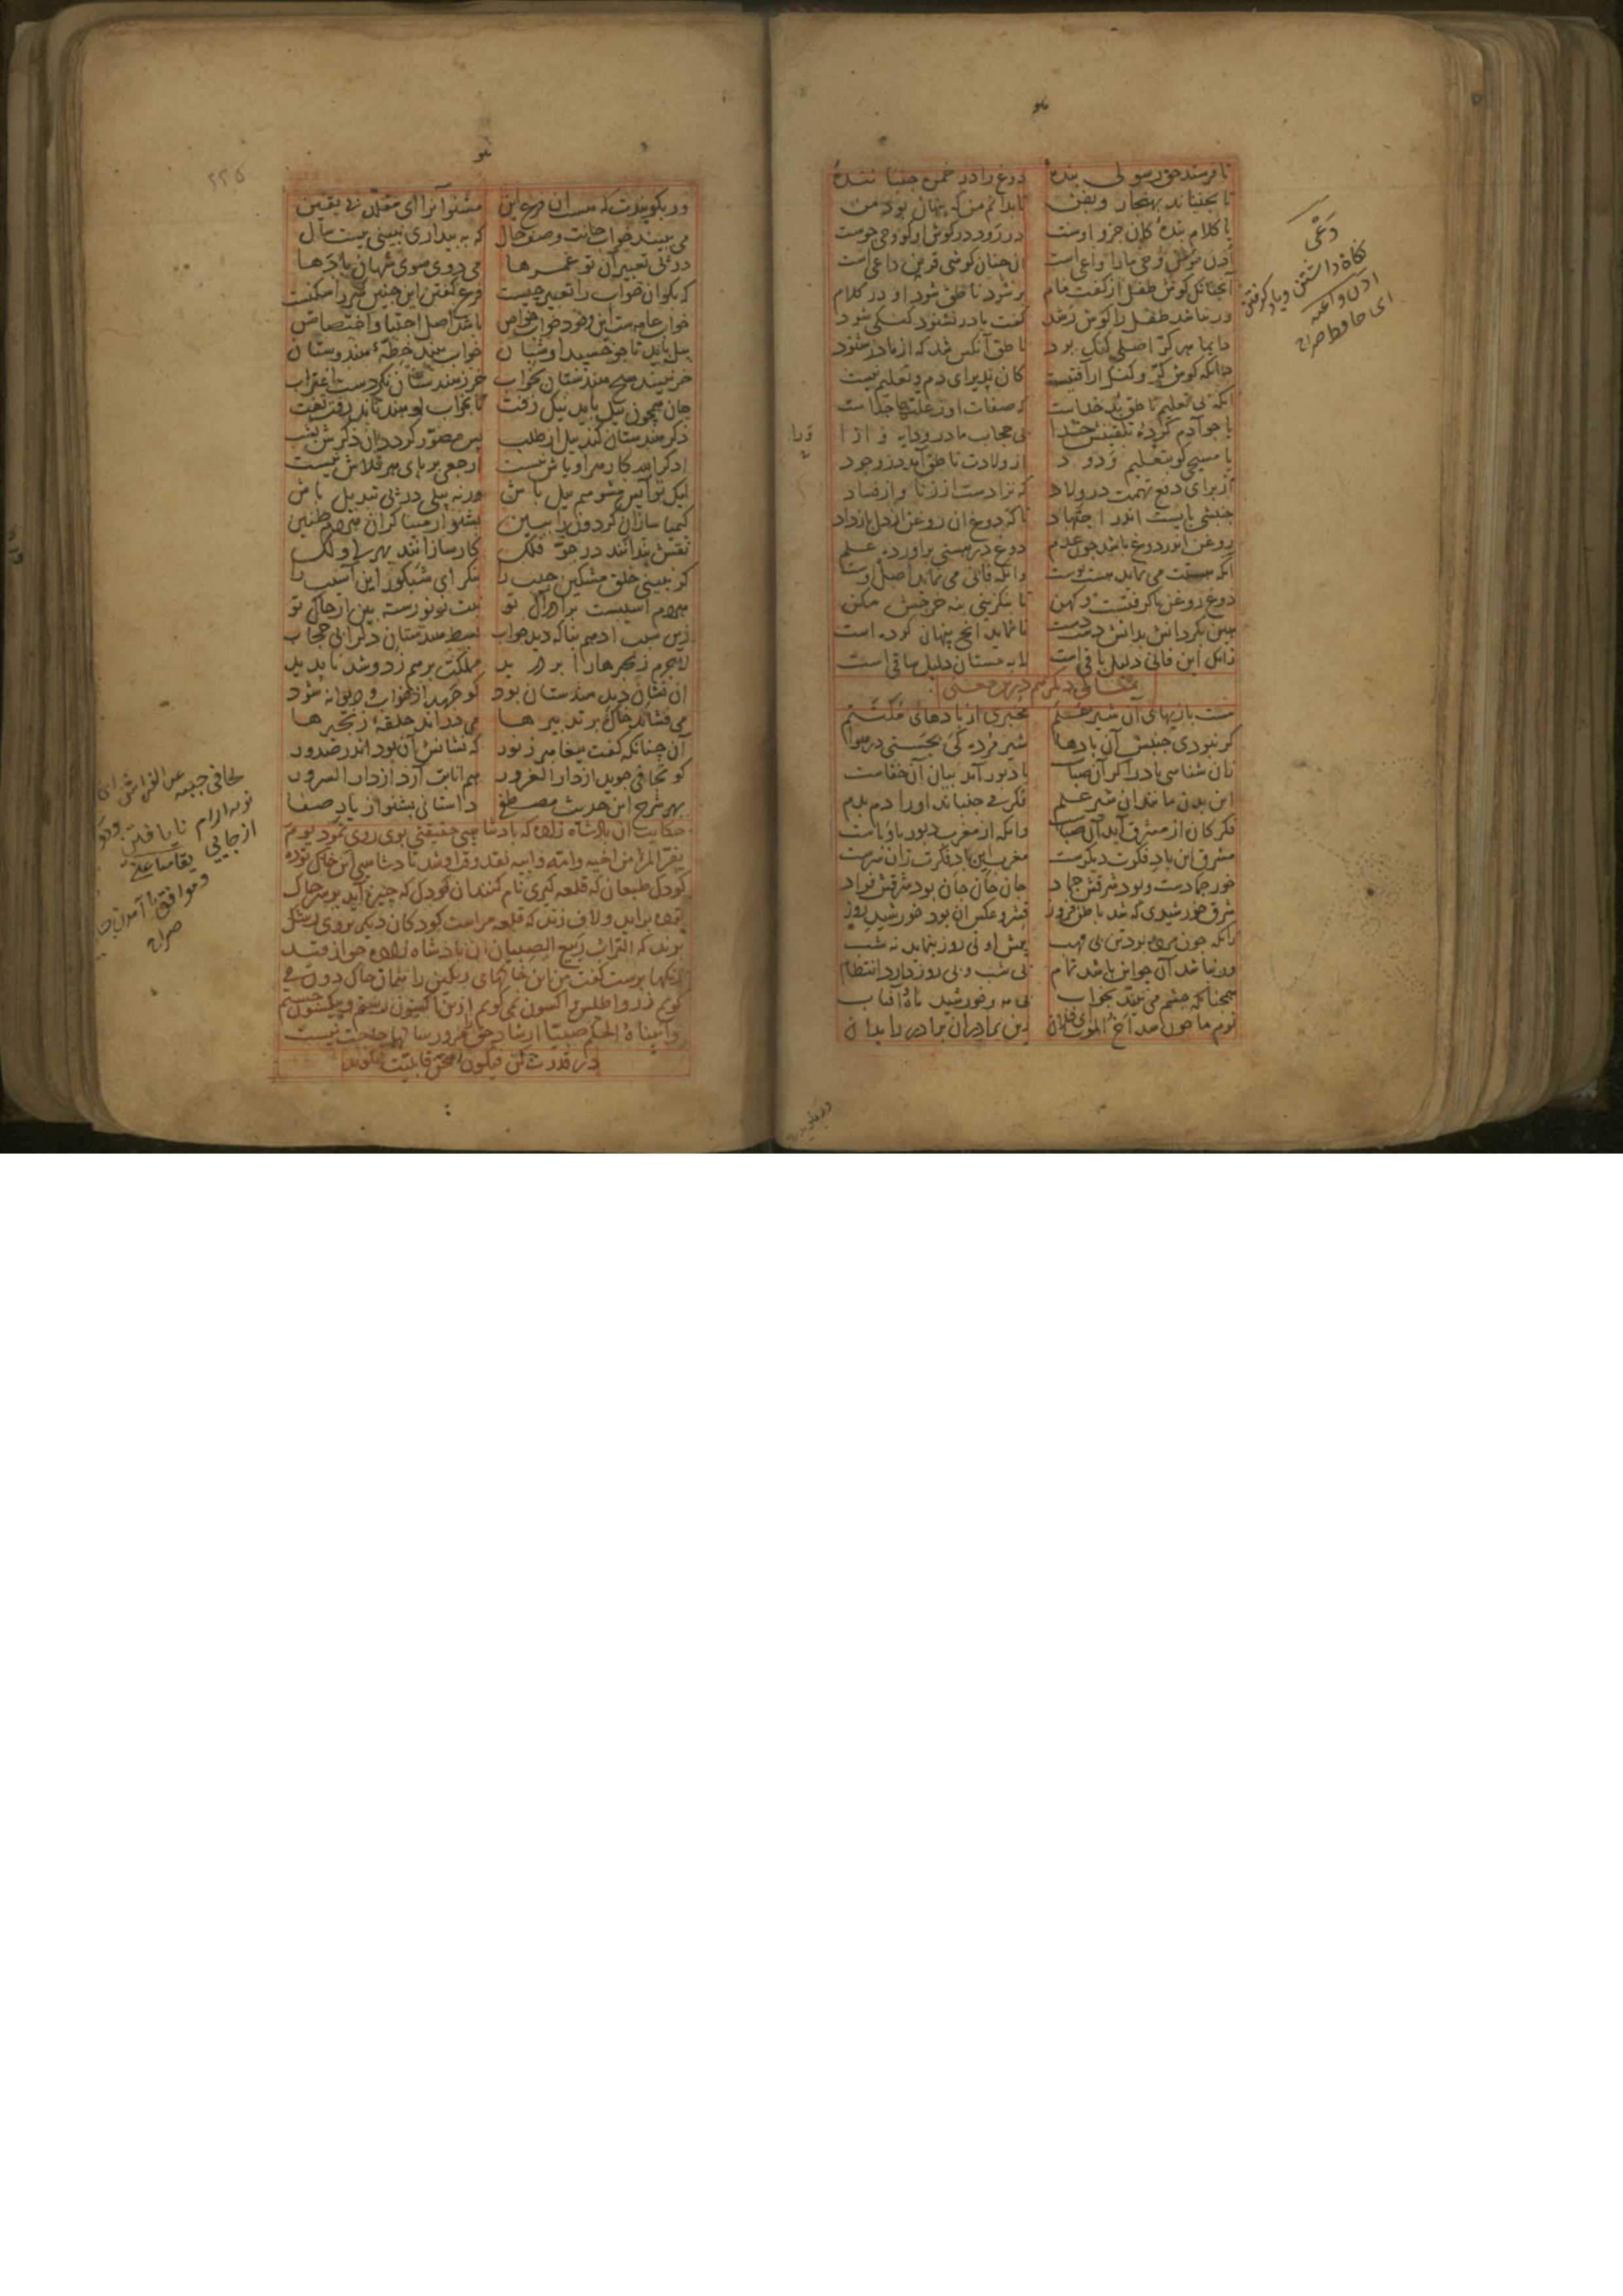 تا فرستد حق رسولی بندهٔ دوغ را در خمره جنباننده
تا بجنباند بهنجار و بفن تا بدانم من که پنهان بود من
یا کلام بندهٔ کان جزو اوست در رود در گوش او کو وحی جوست
اذن مؤمن وحی ما را واعی است آن چنان گوشی قرین داعی است
آنچنانک گوش طفل از گفت مام پر شود ناطق شود او در کلام
ور نباشد طفل را گوش رشد گفت مادر نشنود گنگی شود
دایما هر کر اصلی گنگ بود ناطق آنکس شد که از مادر شنود
دانکه گوش کر و گنگ از آفتیست کان پذیرای دم و تعلیم نیست
آنکه بی تعلیم ناطق بد خداست که صفات او ز علتها جداست
یا چو آدم کرده تلقینش خدا بی حجاب مادر و دایه و ازا
یا مسیحی کو بتعلیم ودود از ولادت ناطق آمد در وجود
از برای دفع تهمت در ولاد که نزادست از زنا و از فساد
جنبشی بایست اندر اجتهاد تا که دوغ آن روغن از دل باز داد
روغن اندر دوغ باشد چون عدم دوغ در هستی برآورده علم
آنکه هستت می نماید هست پوست وانکه فانی می نماید اصل اوست
دوغ روغن ناگرفتست و کهن تا بنگزینی بنه خرجش مکن
هین بگردانش بدانش دست دست تا نماید آنچ پنهان کرده است
زانک این فانی دلیل باقی است لابه مستان دلیل ساقی است
مثالی دیگر هم درین معنی
هست بازیهای آن شیر علم مخبری از بادهای مکتتم
گر نبودی جنبش آن بادها شیر مرده کی بجستی در هوا
زان شناسی باد را گر آن صباست یا دبورست این بیان آن خفاست
این بدن مانند آن شیر علم فکر می جنباند او را دم بدم
فکر کان از مشرق آید آن صباست وانکه از مغرب دبور با وباست
مشرق این باد فکرت دیگرست مغرب این باد فکرت زان سرست
خور جمادست و بود شرقش جماد جان جان جان بود شرقش فؤاد
شرق خورشیدی که شد باطن فروز قشر و عکس آن بود خورشید روز
زانکه چون مرده بود تن بی لهب پیش او نی روز بنماید نه شب
ور نباشد آن چو این باشد تمام بی شب و بی روز دارد انتظام
همچنانکه چشم می بیند بخواب بی مه و خورشید ماه و آفتاب
نوم ما چون شد اخ الموت ای فلان زین برادر آن برادر را بدان
وعی
نگاه داشتن و یاد گرفتن
اذن واعیه
ای حافظه صراح
ور بگویندت که هست آن فرع این مشنو آن را ای مقلد بی یقین
می ببیند خواب جانت وصف حال که به بیداری نبینی بیست سال
در پی تعبیر آن تو عمرها می دوی سوی شهان با دها
که بگو آن خواب را تعبیر چیست فرع گفتن این چنین سر را سگیست
خواب عامه ست این و خود خواب خواص باشد اصل اجتبا و اختصاص
پیل باید تا چو خسبد او ستان خواب بیند خطهٔ هندوستان
خر نبیند هیچ هندستان بخواب خر ز هندستان نکردست اغتراب
جان همچون پیل باید نیک زفت تا بخواب او هند تاند رفت تفت
ذکر هندستان کند پیل از طلب پس مصور گردد آن ذکرش بشب
اذکروا الله کار هر اوباش نیست ارجعی بر پای هر قلاش نیست
لیک تو آیس مشو هم پیل باش ور نه پیلی در پی تبدیل باش
کیمیاسازان گردون را ببین بشنو از میناگران هر دم طنین
نقش بندانند در جو فلک کارسازانند بهر لی و لک
گر نبینی خلق مشکین جیب را بنگر ای شبکور این آسیب را
هر دم آسیبست بر ادراک تو نبت نو نو رسته بین از خاک تو
زین سبب ادهم بنا که دید خواب بسط هندستان دل را بی حجاب
لاجرم زنجیرها را بر درید مملکت بر هم زد و شد ناپدید
آن نشان دید هندستان بود کو جهد از خواب و دیوانه شود
می فشاند خاک بر تدبیرها می دراند حلقهٔ زنجیرها
آن چنانکه گفت پیغامبر ز نور که نشانش آن بود اندر صدور
کو تجافی جوید از دار الغرور هم انابت آرد از دار السرور
بهر شرح این حدیث مصطفی داستانی بشنو ای یار صفا
حکایت آن پادشاه زاده که پادشاهی حقیقی بوی روی نمود یوم
یفر المرء من اخیه و امه و ابیه نقد وقت او شد پادشاهی این خاک توده
کودک طبعان که قلعه گیری نام کنند آن کودک که چیره آید بر سر خاک
توده برآید و لاف زند که قلعه مراست کودکان دیگر بر وی رشک
برند که التراب ربیع الصبیان آن پادشاه زاده چو از قید
رنگها برست گفت من این خاکهای رنگین را همان خاک دون می
گویم زر و اطلس و اکسون نمی گویم ازین اکسون رستم و بیکسون جستم
و آتیناه الحکم صبیا ارشاد حق را مرور سالها حاجت نیست
در قدرت کن فیکون سخن قابلیت نگوید
تجافی جنبه عن الفراش ای
از جایی
صراح